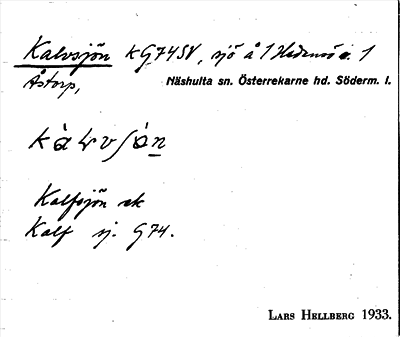 Kalvsjön k G 74 SV, sjö å 1 Hedensö o. 1
Åstorp,
Näshulta sn. Österrekarne hd. Söderm. l.
Kalfsjön ek
Kalf sj. G 74.
LARS HELLBERG 1933.